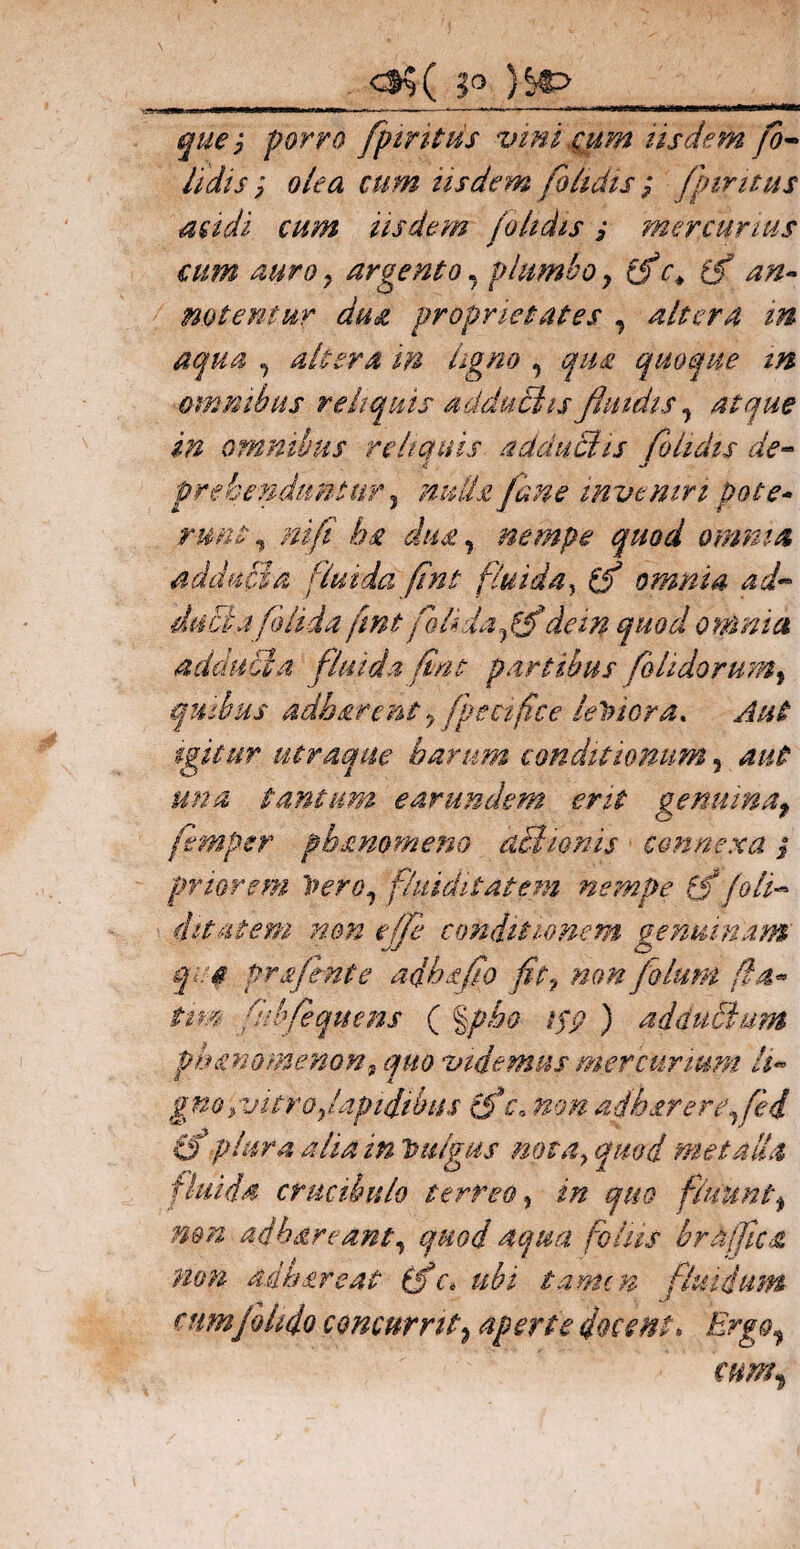 ( 30 )
que; porro ſpiritus vini cum iisdem ſo-
lidis; olea cum iisdem ſolidis; ſpiritus
acidi cum iisdem ſolidis; mercurius
cum auro, argento, plumbo, &c. & an-
notentur duæ proprietates, altera in
aqua, altera in ligno, quæ quoque in
omnibus reliquis adductis fluidis, atque
in omnibus reliquis adductis ſolidis de-
prehenduntur, nullæ ſane inveniri pote-
runt, niſi hæ duæ, nempe quod omnia
adducta fluida ſint fluida, & omnia ad-
ducta ſolida ſint ſolida, & dein quod omnia
adducta fluida ſint partibus ſolidorum,
quibus adhærent, ſpecifice leviora. Aut
igitur utraque harum conditionum, aut
una tantum earundem erit genuina,
ſemper phænomeno actionis connexa;
priorem vero, fluiditatem nempe & ſoli-
ditatem non eſſe conditionem genuinam
qua præſente adhæſio fit, non ſolum ſta-
tim ſubſequens ( §pho 159 ) adductum
phænomenon, quo videmus mercurium li-
gno, vitro, lapidibus &c. non adhærere, ſed
& plura alia in vulgus nota, quod metalla
fluida crucibulo terreo, in quo fluunt,
non adhæreant, quod aqua foliis braſſicæ
non adhæreat &c. ubi tamen fluidum
cum ſolido concurrit, aperte docent. Ergo,
cum,